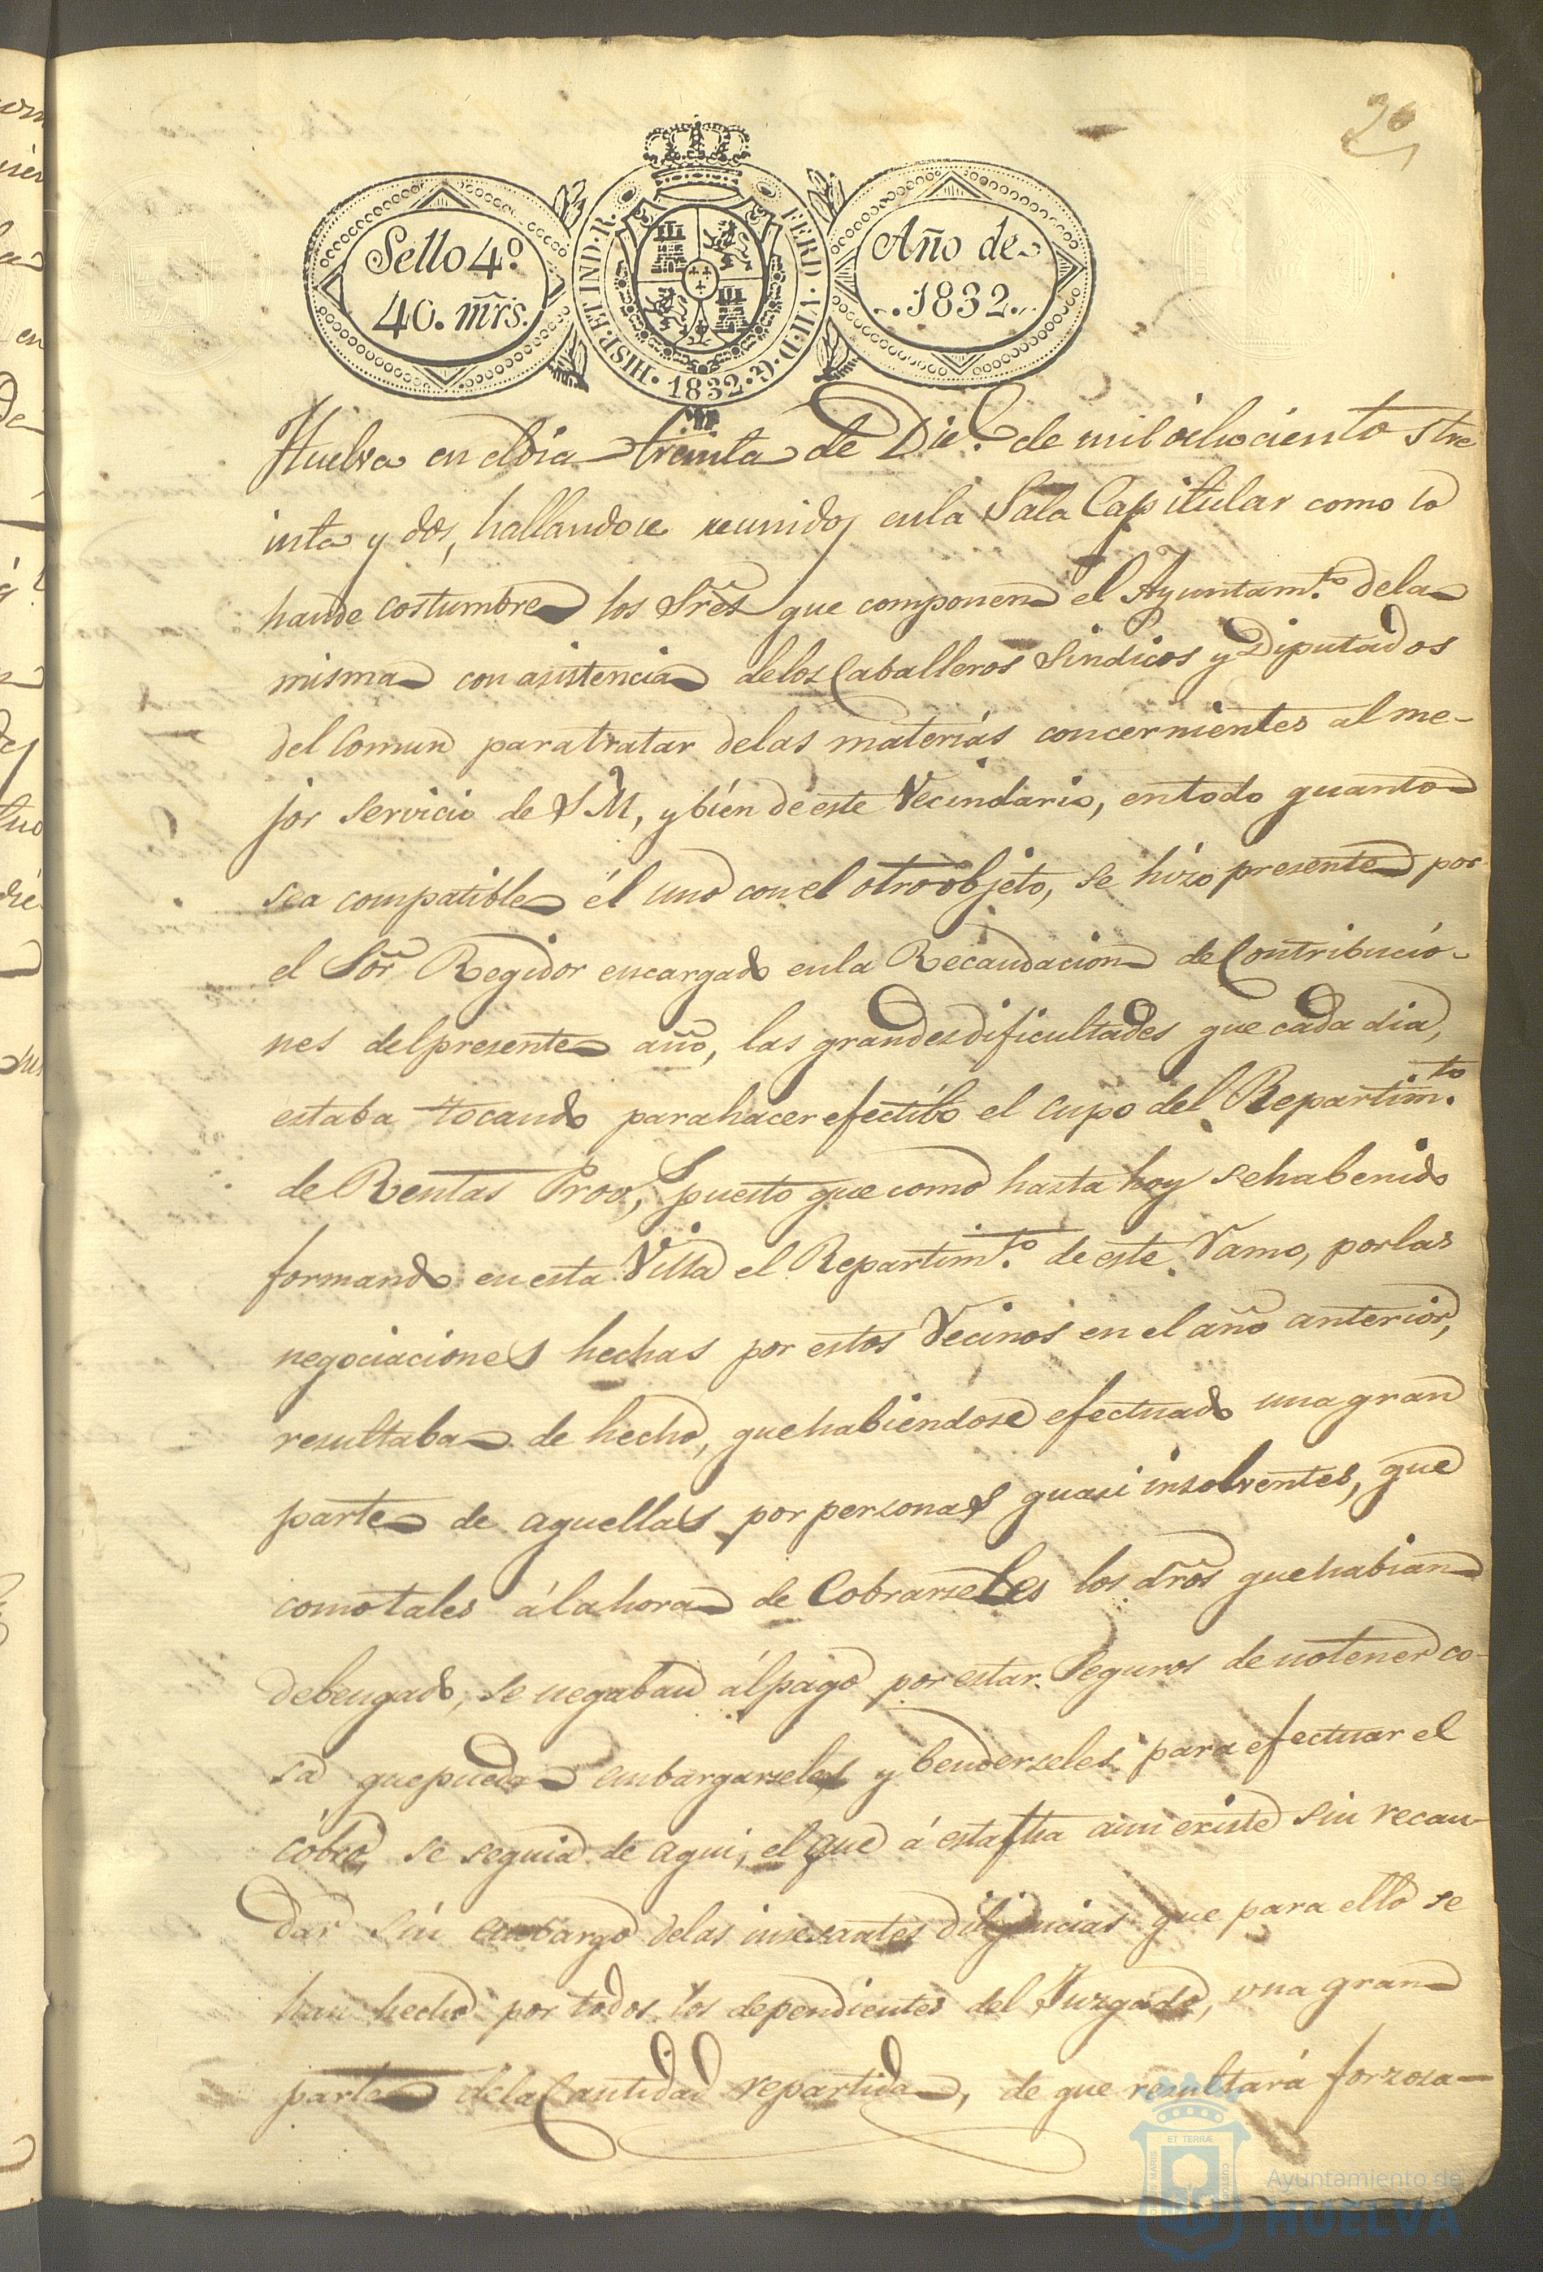 26
Sello 4.º
40. mrs.
HISP. ET IND. R. FERD. VII. D. G. 1832.
Año de
1832
Huelva en el dia treinta de Dic.e de mil ochocientos tre
inta y dos, hallandose reunidos en la Sala Capitular como lo
han de costumbre los Sres que componen el Ayuntam.to de la
misma con asistencia de los Caballeros Sindicos y Diputados
del Comun para tratar de las materias concernientes al me-
jor servicio de S M, y bien de este Vecindario, en todo quanto
sea compatible él uno con el otro objeto, se hizo presente por
el Sor Regidor encargado en la Recaudacion de Contribucio-
nes del presente año, las grandes dificultades que cada dia,
estaba tocando para hacer efectibo el cupo del Repartim.to
de Rentas Prov,s puesto que como hasta hoy se ha benido
formando en esta Villa el Repartim.to de este Ramo, por las
negociaciones hechas por estos Vecinos en el año anterior,
resultaba de hecho, que habiendose efectuado una gran
parte de aquellas por personas quasi insolventes, que
como tales á la hora de Cobrarseles los dros que habian
debengado, se negaban ál pago por estar Seguros de no tener co-
sa que pueda embargarseles y benderseles para efectuar el
cóbro, se seguia de aqui, el que á esta fha aun existe sin recau-
dar sin embargo de las insesantes diligencias que para ello se
han hecho por todos los dependientes del Juzgado, una gran
parte de la Cantidad repartida, de que resultará forzosa-
ET TERRÆ
MARIS
CUSTOS
Ayuntamiento de
HUELVA